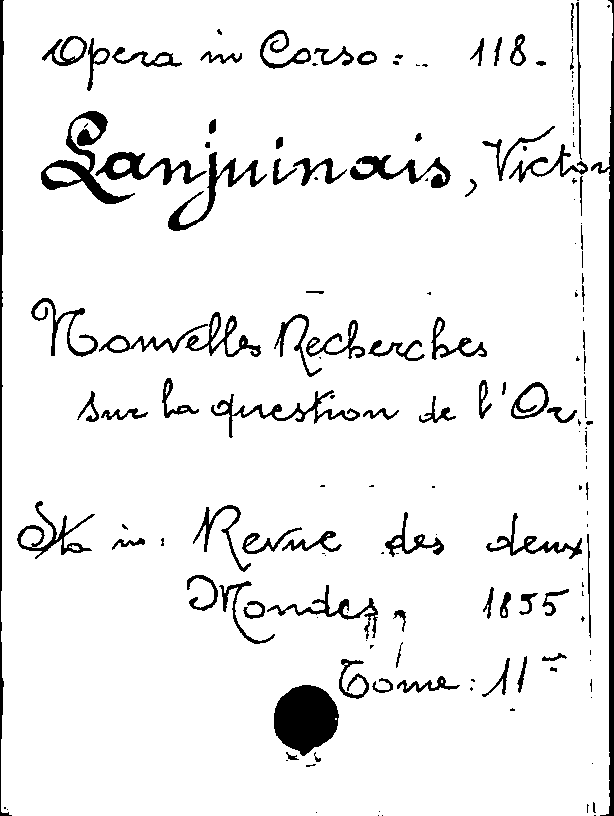 Opera in Corso: 118.
Lanjuinais, Victor
Nouvelles Recherches
sur la question de l'Or.
Sta in: Revue des deux
Mondes, 1855
Tome: 11